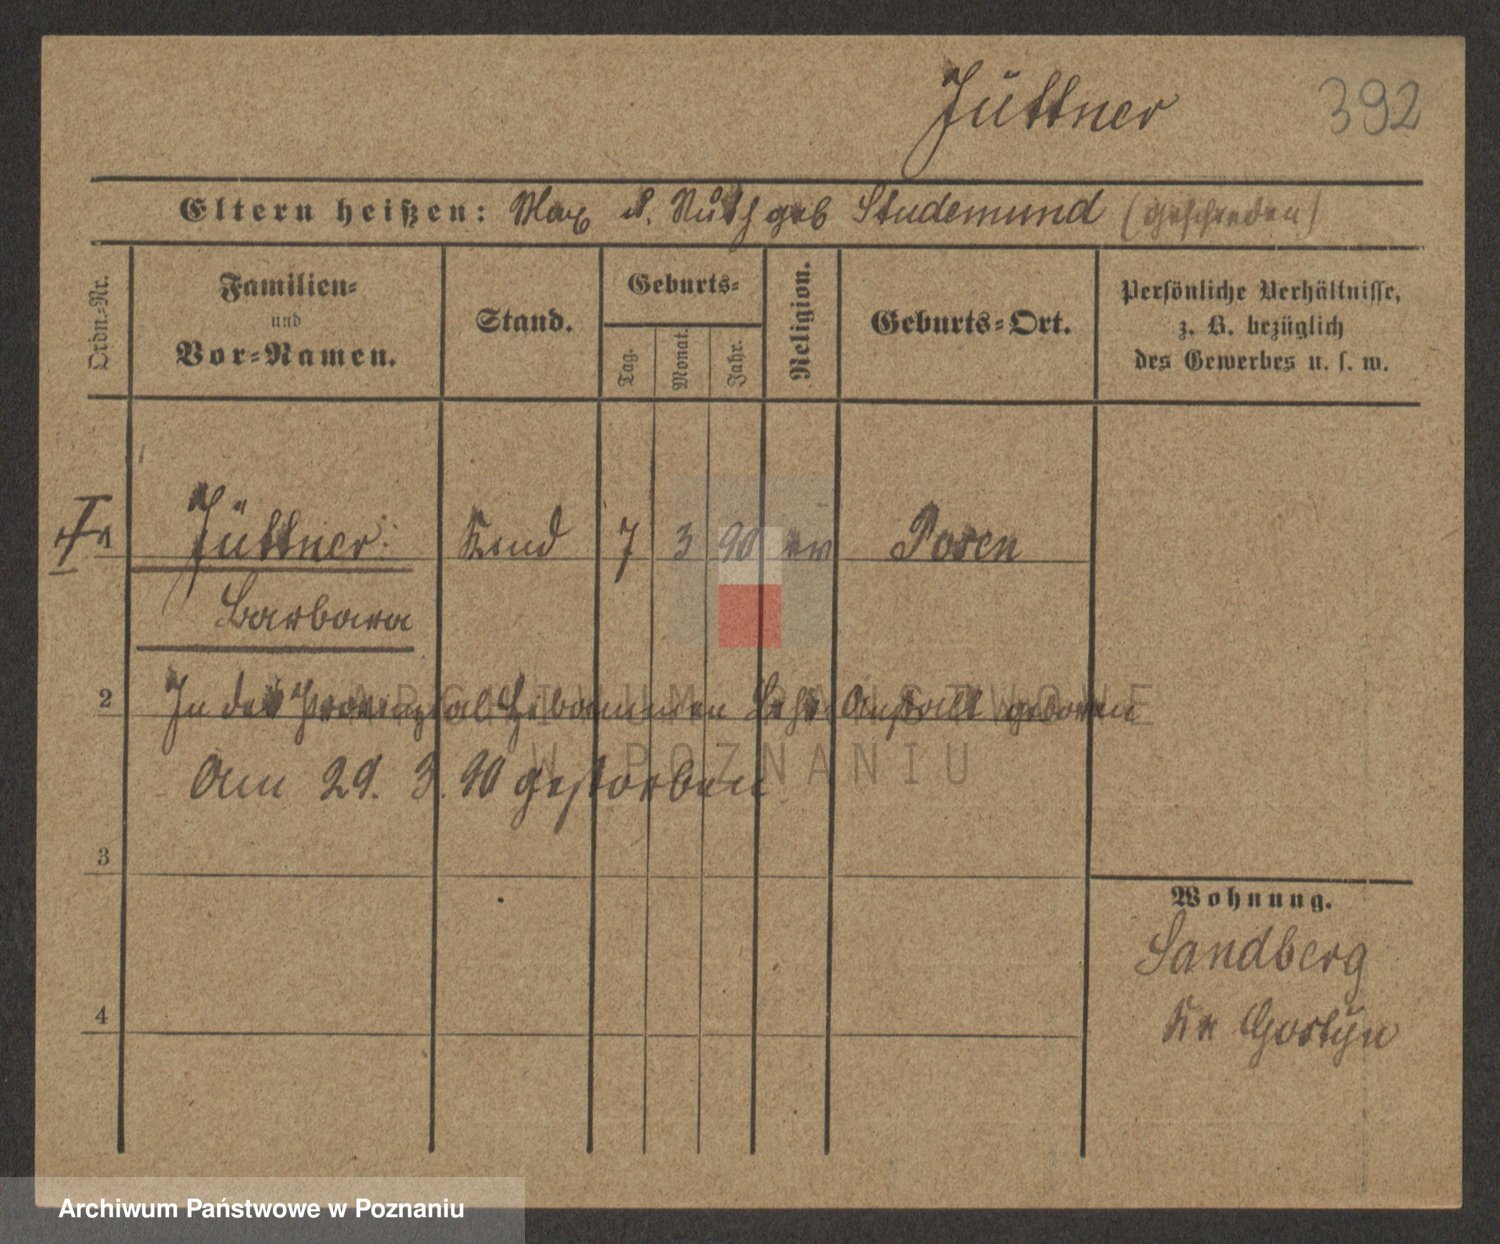 Jüttner 392
Eltern heißen: Max u. Ruth geb Studemund (geschieden)
Ordn.-Nr.
Familien-
und
Vor-Namen.
Stand.
Geburts-
Tag.
Monat.
Jahr.
Religion.
Geburts-Ort.
Persönliche Verhältnisse,
z. B. bezüglich
des Gewerbes u. s. w.
1 Jüttner Kind 7 3 90 ev Posen
Barbara
2 In der Provinzial Hebammen Lehr Anstalt geboren
Am 29. 3. 90 gestorben
3
Wohnung.
Sandberg
4 Kr Gostyn
ARCHIWUM PAŃSTWOWE
W POZNANIU
Archiwum Państwowe w Poznaniu